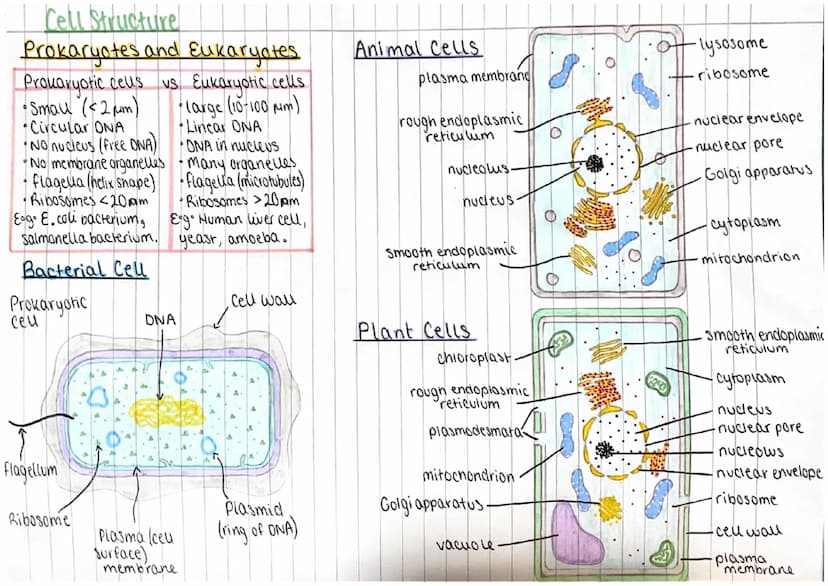 Cell Structure
Prokaryotes and Eukaryotes
Prokaryotic cells vs Eukaryotic cells
• Small (<2 µm)
• Circular DNA
• No nucleus (free DNA)
• No membrane organelles
• Flagella (helix shape)
• Ribosomes <20nm
E.g. E.coli bacterium,
salmonella bacterium.
• Large (10-100 µm)
• Linear DNA
• DNA in nucleus
• Many organelles
• Flagella (microtubules)
• Ribosomes >20nm
E.g. Human liver cell,
yeast, amoeba.
Bacterial Cell
Prokaryotic
cell
DNA
Cell wall
Flagellum
Ribosome
Plasma (cell
surface)
membrane
Plasmid
(ring of DNA)
Animal Cells
plasma membrane
rough endoplasmic
reticulum
nucleolus
nucleus
smooth endoplasmic
reticulum
lysosome
ribosome
nuclear envelope
nuclear pore
Golgi apparatus
cytoplasm
mitochondrion
Plant Cells
chloroplast
rough endoplasmic
reticulum
plasmodesmata
mitochondrion
Golgi apparatus
vacuole
smooth endoplasmic
reticulum
cytoplasm
nucleus
nuclear pore
nucleolus
nuclear envelope
ribosome
cell wall
plasma
membrane